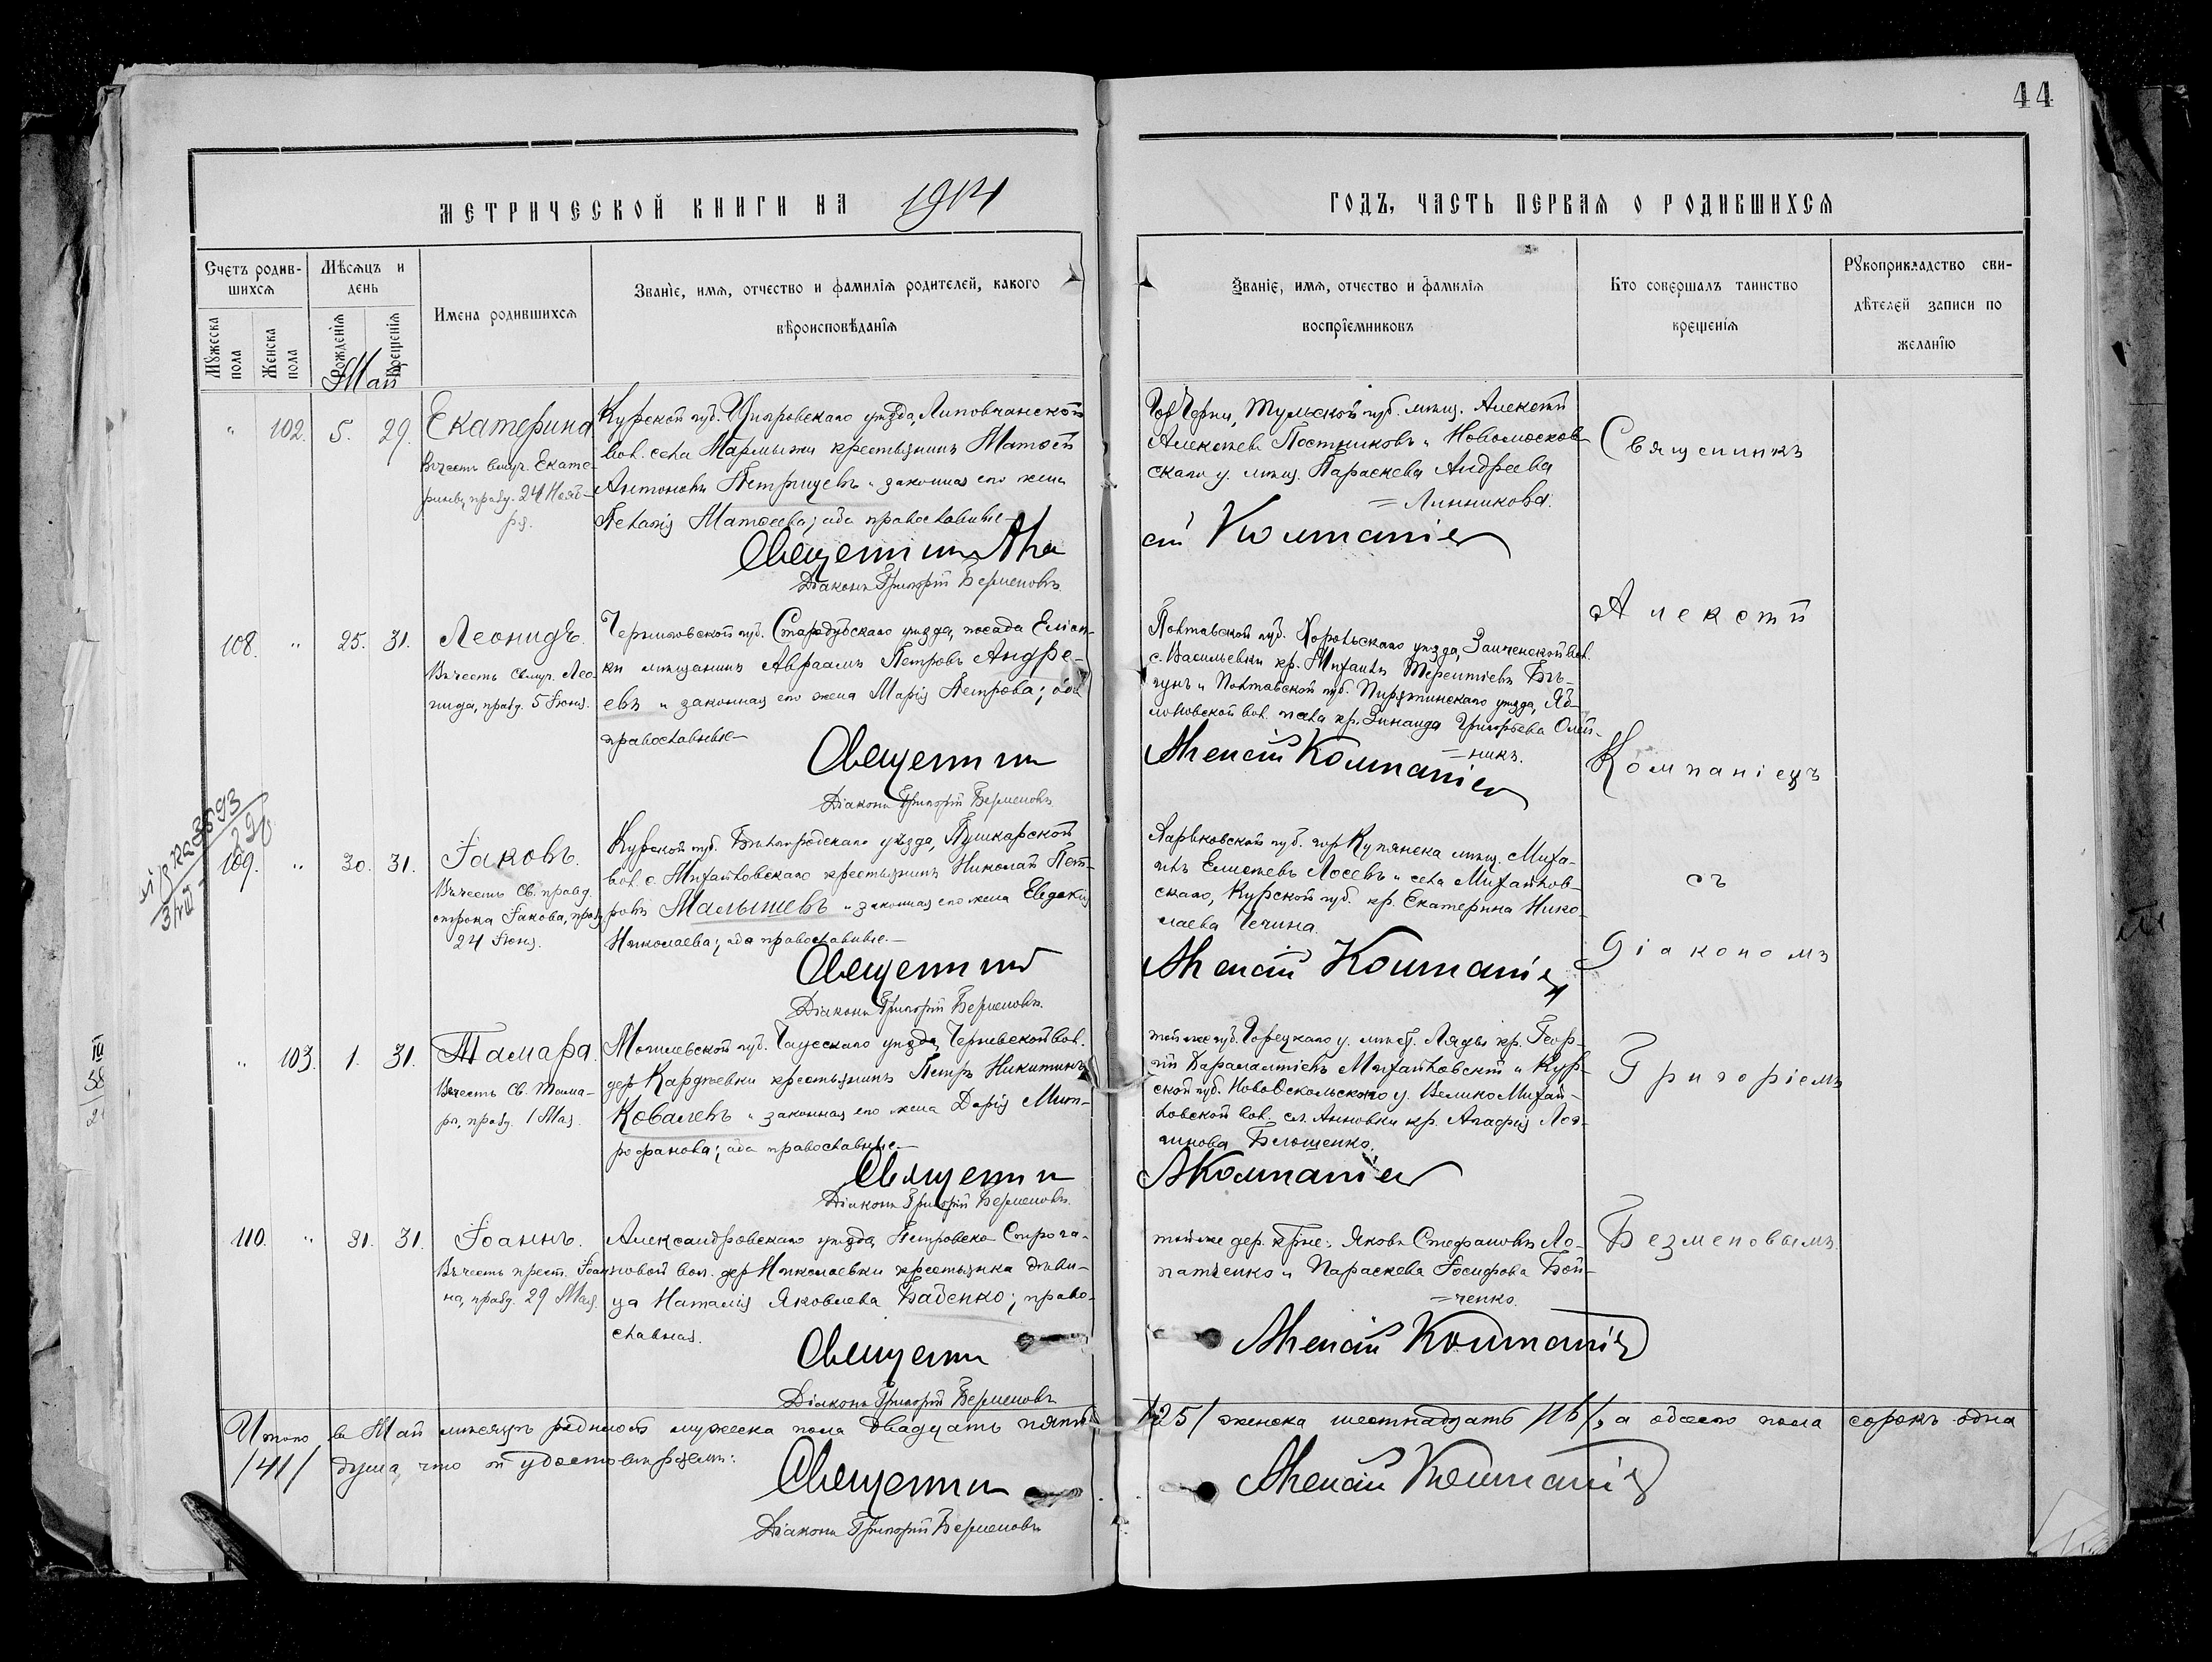 44
МЕТРИЧЕСКОЙ КНИГИ НА 1914
ГОДЪ, ЧАСТЬ ПЕРВАЯ О РОДИВШИХСЯ
Счетъ родив-
шихся
Мужеска пола
Женска пола
Мѣсяцъ и
день
Рожденія
Крещенія
Имена родившихся
Званіе, имя, отчество и фамилія родителей, какого
вѣроисповѣданія
Званіе, имя, отчество и фамилія
воспріемниковъ
Кто совершалъ таинство
крещенія
Рукоприкладство сви-
дѣтелей записи по
желанію
Май
" 102. 5. 29.
Екатерина
Въ честь вмуч. Екате-
рины, празд. 24 Нояб-
ря.
Курской губ. Щигровскаго уѣзда, Липовчанской
вол. села Мармыжи крестьянинъ Матѳей
Антоновъ Петрищевъ и законная его жена
Пелагія Матѳеева; оба православные
Священникъ Але
Діаконъ Григорій Безменовъ
Гор. Черни, Тульской губ. мѣщ. Алексѣй
Алексѣевъ Постниковъ и Новомосков-
скаго у. мѣщ. Параскева Андреева
= Линникова.
сій Компаніец
108. " 25. 31.
Леонидъ.
Въ честь Св. муч. Лео-
нида, празд. 5 Іюня.
Черниговской губ. Стародубскаго уѣзда, посада Еліон-
ки мѣщанинъ Авраамъ Петровъ Андре-
евъ и законная его жена Марія Петрова; оба
православные
Священник
Діаконъ Григорій Безменовъ
Полтавской губ. Хорольскаго уѣзда, вол.
с. Васильевки кр. Михаилъ Терентіевъ Бѣ-
гунъ и Полтавской губ. Пирятинскаго уѣзда, Яб-
лоновской вол. кр. Зинаида Григорьева Олѣй-
= никъ.
Алексій Компаніец
109. " 30. 31.
Іаковъ.
Въ честь Св. правд.
отрока Іакова, празд.
24 Іюня.
Курской губ. Бѣлгородскаго уѣзда, Пушкарской
вол. с. Михайловскаго крестьянинъ Николай Пет-
ровъ Малышевъ и законная его жена Евдокія
Николаева; оба православные.
Священник
Діаконъ Григорій Безменовъ.
Харьковской губ. гор Купянска мѣщ. Миха-
илъ Елисѣевъ Лосевъ и села Михайлов-
скаго, Курской губ. кр. Екатерина Нико-
лаева Чечина.
Алексій Компаніец
" 103. 1. 31.
Тамара.
Въ честь Св. Тама-
ры, празд. 1 Мая.
Могилевской губ. Чаусскаго уѣзда, Черневской вол.
дер. Кардѣевки крестьянинъ Петръ Никитинъ
Ковалевъ и законная его жена Дарія Мит-
рофанова; оба православные
Священник
Діаконъ Григорій Безменовъ.
той же губ. Горецкаго у. мѣст. Ляды кр. Геор-
гій Михайловскій и Кур-
ской губ. НовоОскольскаго у. ВеликоМихай-
ловской вол. сл. Анновки кр. Агафія Лог-
гинова Белошенко.
АКомпаніец
110. " 31. 31.
Іоаннъ.
Въ честь преп. Іоан-
на, празд. 29 Мая.
Александровскаго уѣзда, Петровско-Строга-
новой вол. дер Николаевки крестьянка дѣви-
ца Наталія Яковлева Баденко; право-
славная.
Священник
Діаконъ Григорій Безменовъ
той же дер. кр-не: Яковъ Стефановъ Ло-
патченко и Параскева Іосифова Бой-
= ченко.
Алексій Компаніец
Священникъ
Алексѣй
Компаніецъ
съ
Діакономъ
Григоріемъ
Безменовымъ.
Итого въ Май мѣсяцѣ родилось мужеска пола двадцать пять /25/ женска шестнадцать /16/, а обоего пола сорокъ одна
/41/ душа, что и удостовѣряемъ:
Священник Алексій Компаніец
Діаконъ Григорій Безменовъ